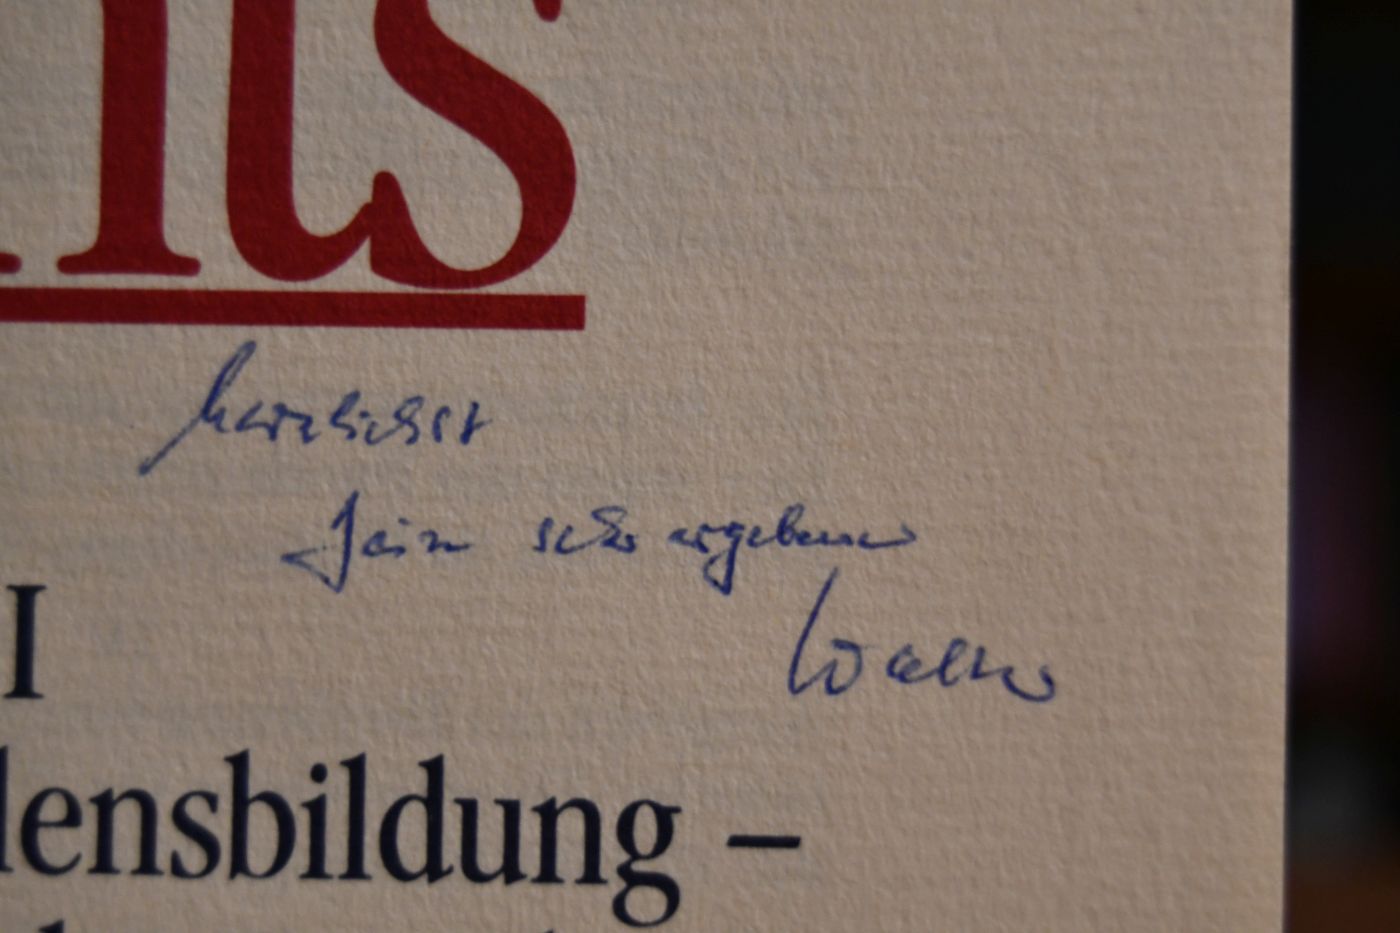 its
herzlichst
Dein sehr ergebener
I
lensbildung –
Walter